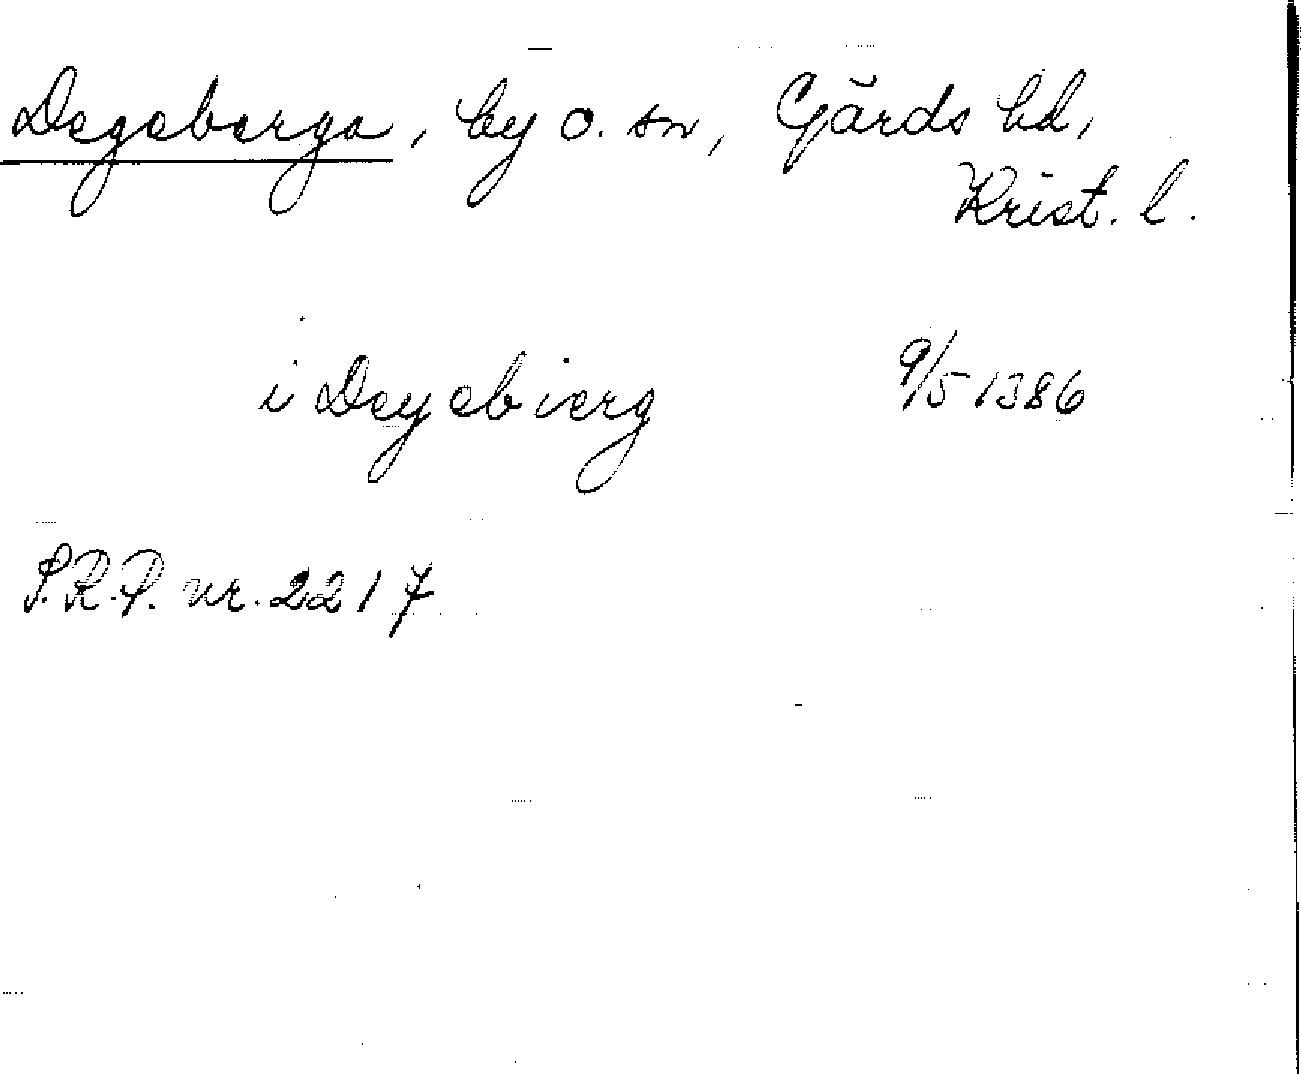 Degeberga, by o. sn, Gärds hd,
Krist. l.
i Deyebierg 9/5 1386
S.R.P. nr. 2217